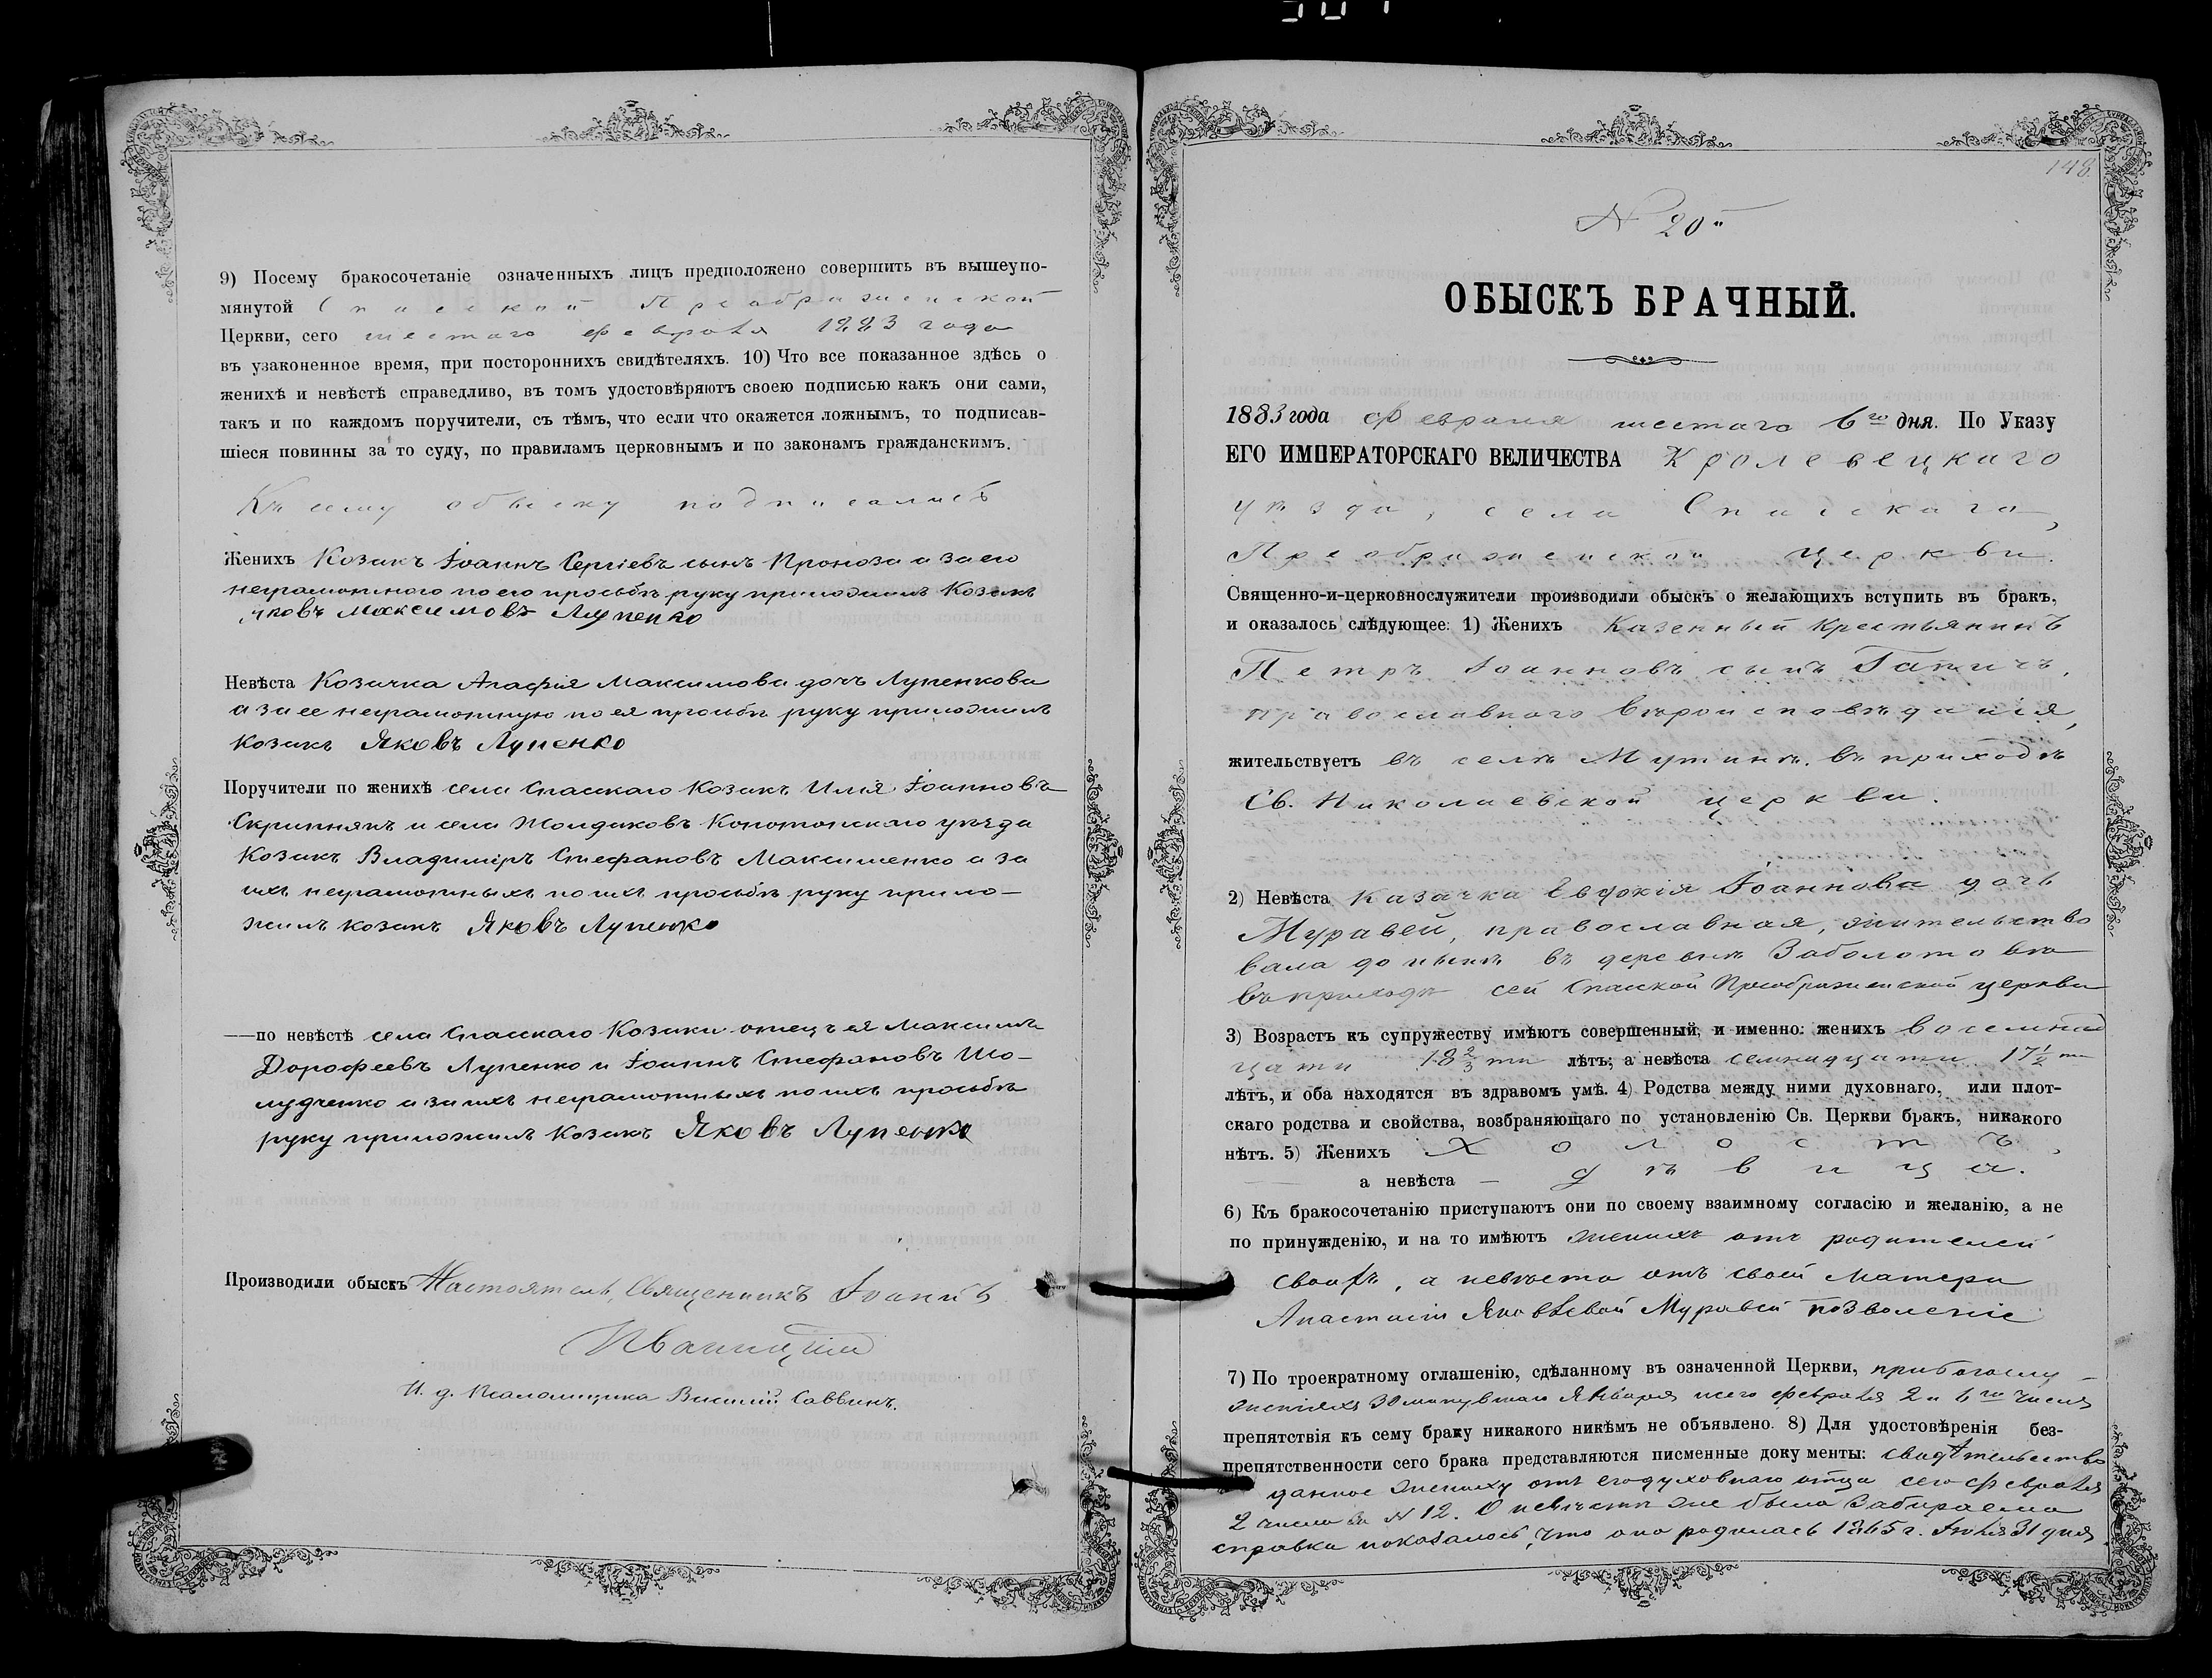 9) Посему бракосочетаніе означенныхъ лицъ предположено совершить въ вышеупо-
мянутой Спасской Преображенской
Церкви, сего шестаго февраля 1883 года
въ узаконенное время, при постороннихъ свидѣтеляхъ. 10) Что все показанное здѣсь о
женихѣ и невѣстѣ справедливо, въ томъ удостовѣряютъ своею подписью какъ они сами,
такъ и по каждомъ поручители, съ тѣмъ, что если что окажется ложнымъ, то подписав-
шіеся повинны за то суду, по правиламъ церковнымъ и по законамъ гражданскимъ.
Къ сему обыску подписались
Женихъ Козакъ Іоаннъ Сергіевъ сынъ Проноза а за его
неграмотного по его просьбѣ руку приложилъ Козакъ
Яковъ Максимовъ Лупенко
Невѣста Козачка Агафія Максимова дочь Лупенкова
а за ее неграмотную по ея просьбѣ руку приложилъ
Козакъ Яковъ Лупенко
Поручители по женихѣ села Спасскаго Козакъ Илія Іоанновъ
Скрипнякъ и села Жолдаковъ Конотопскаго уѣзда
Козакъ Владиміръ Стефановъ Максименко а за
ихъ неграмотныхъ по ихъ просьбѣ руку прило-
жилъ козакъ Яковъ Лупенко
—по невѣстѣ села Спасскаго Козаки отецъ ея Максимъ
Дорофеевъ Лупенко и Іоаннъ Стефановъ Шо-
лудченко а за ихъ неграмотныхъ по ихъ просьбѣ
руку приложилъ Козакъ Яковъ Лупенко
Производили обыскъ Настоятель, Священникъ Іоаннъ
И. д. Псаломщика Василій Саввинъ.
148
N 20й
ОБЫСКЪ БРАЧНЫЙ.
1883 года февраля шестаго 6го дня. По Указу
ЕГО ИМПЕРАТОРСКАГО ВЕЛИЧЕСТВА Кролевецкаго
уѣзда, села Спасскаго,
Преображенской церкви.
Священно-и-церковнослужители производили обыскъ о желающихъ вступить въ бракъ,
и оказалось слѣдующее: 1) Женихъ Казенный Крестьянинъ
Петръ Іоанновъ сынъ Гапичъ,
православного вѣроисповѣданія,
жительствуетъ въ селѣ Мутинѣ, въ приходѣ
Св. Николаевской церкви.
2) Невѣста Казачка Евдокія Іоаннова дочь
Муравей, православная, жительство
вала до нынѣ въ деревнѣ Заболотово
въ приходѣ сей Спасской Преображенской церкви
3) Возрастъ къ супружеству имѣютъ совершенный, и именно: женихъ восемнад
цати 18 2/3 ти лѣтъ; а невѣста семнадцати 17 1/2 ти
лѣтъ, и оба находятся въ здравомъ умѣ. 4) Родства между ними духовнаго, или плот-
скаго родства и свойства, возбраняющаго по установленію Св. Церкви бракъ, никакого
нѣтъ. 5) Женихъ Холостъ,
а невѣста — дѣвица.
6) Къ бракосочетанію приступаютъ они по своему взаимному согласію и желанію, а не
по принужденію, и на то имѣютъ женихъ отъ родителей
своихъ, а невѣста отъ своей матери
Анастасіи Яковлевой Муравей позволеніе
7) По троекратному оглашенію, сдѣланному въ означенной Церкви, при богослу-
женіяхъ 30 минувшаго Января и сего февраля 2 и 6го числа
препятствія къ сему браку никакого никѣмъ не объявлено. 8) Для удостовѣренія без-
препятственности сего брака представляются писменные доку менты: свидѣтельство
данное жениху отъ его духовнаго отца сего февраля
2 числа за N 12. О невѣстѣ же была забираема
справка и оказалось, что она родилась 1865 г. Іюля 31 дня